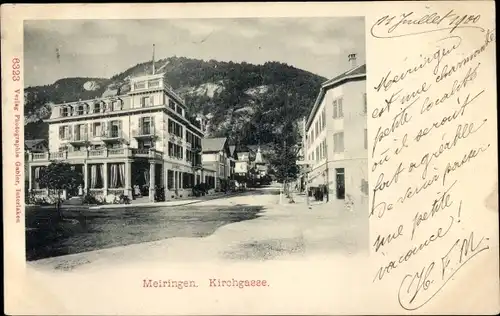 6323 Verlag Photographie Gabler, Interlaken
11 Juillet 1900
Meiringen
est une charmante
petite localité
où il serait
fort agréable
de venir passer
une petite
vacance!
H. F. M.
Meiringen. Kirchgasse.